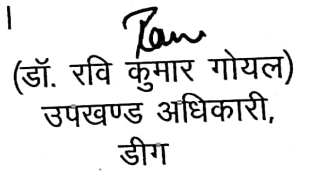 (डॉ. रवि कुमार गोयल)
उपखण्ड अधिकारी,
डीग